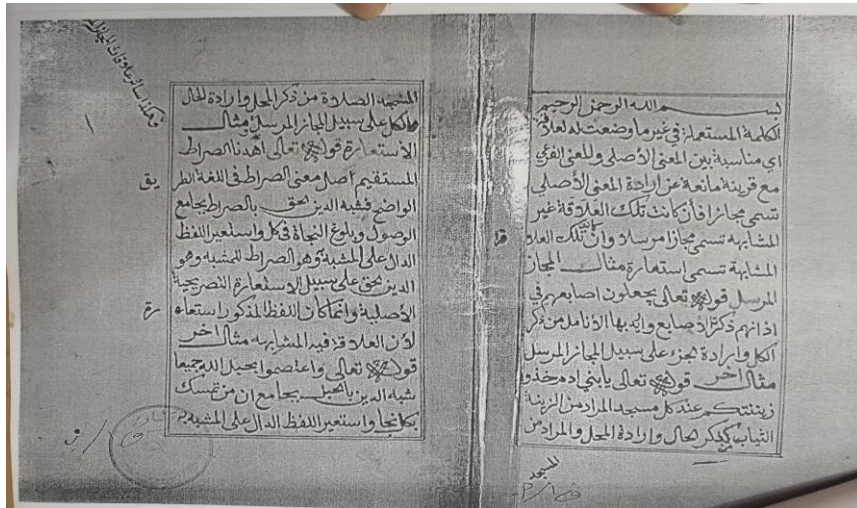 بسم الله الرحمن الرحيم
الكلمة المستعملة في غير ما وضعت له لعلاقة
اي مناسبة بين المعنى الأصلي وللمعنى الفرعي
مع قرينة مانعة عن ارادة المعنى الأصلي
تسمى مجازا فأن كانت تلك العلاقة غير
المشابهه تسمى مجازا مرسلا وأن كانت تلك العلا
قة
المشابهة تسمى استعارة مثال المجاز
المرسل قوله تعالى يجعلون اصابعهم في
اذانهم ذكر الأصابع واريد بها الأنامل من ذكر
الكل وارادة الجزء على سبيل المجاز المرسل
مثال اخر قوله تعالى يابني ادم خذوا
زينتكم عند كل مسجد المراد من الزينة
الثياب بذكر الحال وارادة المحل والمراد من
المسجد
المسجد الصلاة من ذكر المحل وارادة الحال
والكل على سبيل المجاز المرسل ومثال
الأستعارة قوله تعالى أهدنا الصراط
المستقيم أصل معنى الصراط في اللغة الطر
يق
الواضح فشبه الدين الحق بالصراط بجامع
الوصول وبلوغ النجاة في كل واستعير اللفظ
الدال على المشبه به وهو الصراط للمشبه وهو
الدين الحق على سبيل الاستعارة التصريحية
الأصلية وانما كان اللفظ المذكور استعا
رة
لأن العلاقة فيه المشابهه مثال اخر
قوله تعالى واعتصموا بحبل الله جميعا
شبه الدين بالحبل بجامع ان من تمسك
بكل نجا واستعير اللفظ الدال على المشبه به
وهكذا سائر علاقات المجاز
١